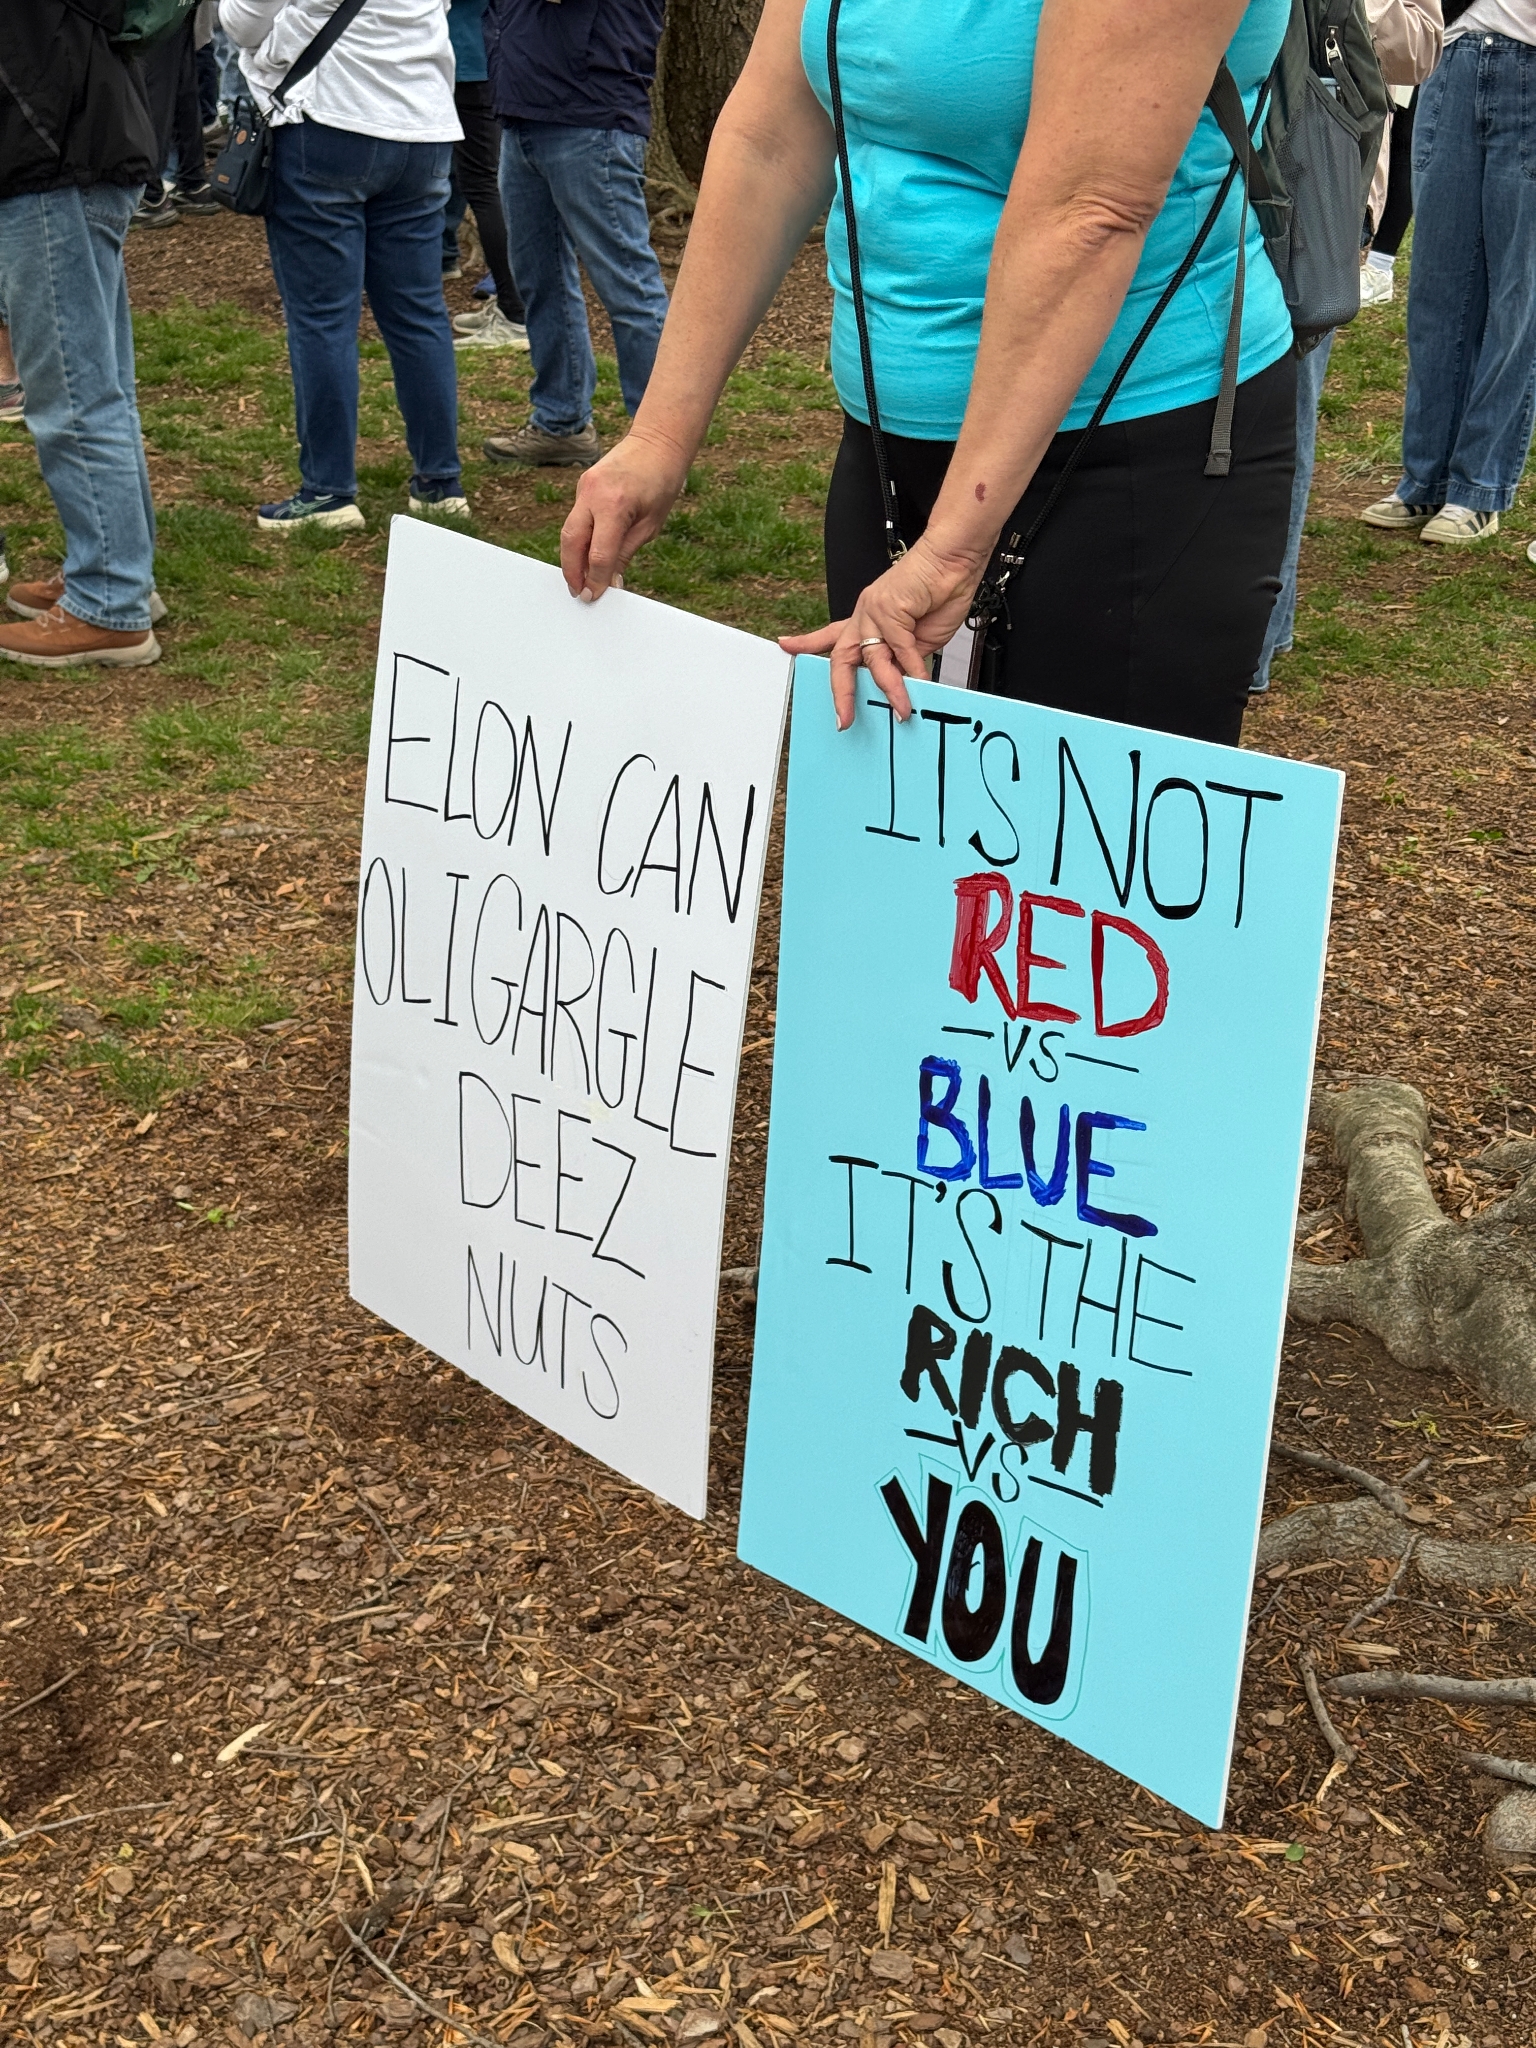 ELON CAN
OLIGARGLE
DEEZ
NUTS
IT'S NOT
RED
-VS-
BLUE
IT'S THE
RICH
-VS-
YOU